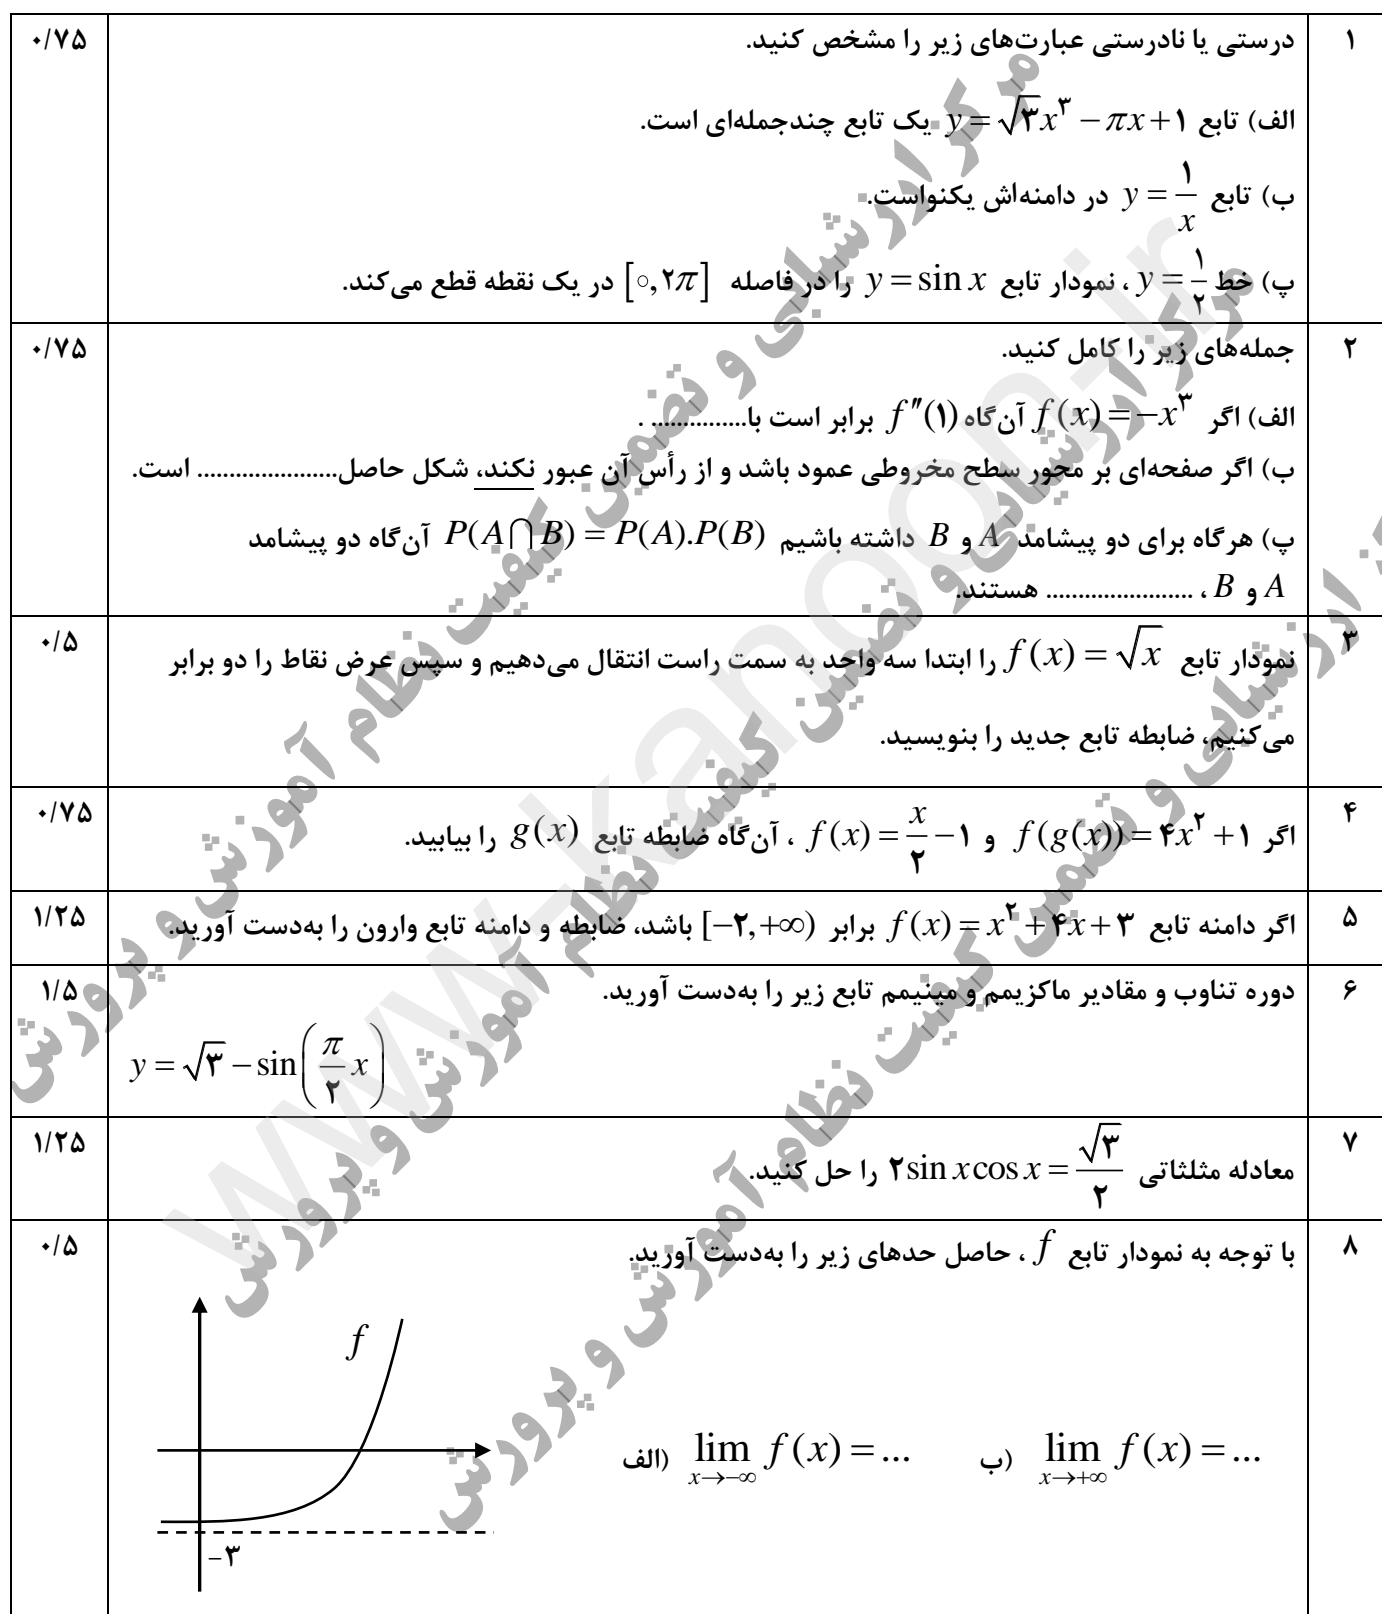 ۱ درستی یا نادرستی عبارت‌های زیر را مشخص کنید. ۰/۷۵
الف) تابع y = √۳x^۳ − πx + ۱ یک تابع چندجمله‌ای است.
ب) تابع y = ۱/x در دامنه‌اش یکنواست.
پ) خط y = ۱/۲ ، نمودار تابع y = sin x را در فاصله [۰, ۲π] در یک نقطه قطع می‌کند.
۲ جمله‌های زیر را کامل کنید. ۰/۷۵
الف) اگر f(x) = −x^۳ آن‌گاه f″(۱) برابر است با............... .
ب) اگر صفحه‌ای بر محور سطح مخروطی عمود باشد و از رأس آن عبور نکند، شکل حاصل...................... است.
پ) هرگاه برای دو پیشامد A و B داشته باشیم P(A⋂B) = P(A).P(B) آن‌گاه دو پیشامد
A و B ، ....................... هستند.
۳ نمودار تابع f(x) = √x را ابتدا سه واحد به سمت راست انتقال می‌دهیم و سپس عرض نقاط را دو برابر ۰/۵
می‌کنیم، ضابطه تابع جدید را بنویسید.
۴ اگر f(g(x)) = ۴x^۲ + ۱ و f(x) = x/۲ − ۱ ، آن‌گاه ضابطه تابع g(x) را بیابید. ۰/۷۵
۵ اگر دامنه تابع f(x) = x^۲ + ۴x + ۳ برابر [−۲, +∞) باشد، ضابطه و دامنه تابع وارون را به‌دست آورید. ۱/۲۵
۶ دوره تناوب و مقادیر ماکزیمم و مینیمم تابع زیر را به‌دست آورید. ۱/۵
y = √۳ − sin(π/۲ x)
۷ معادله مثلثاتی ۲sin x cos x = √۳/۲ را حل کنید. ۱/۲۵
۸ با توجه به نمودار تابع f ، حاصل حدهای زیر را به‌دست آورید. ۰/۵
f
الف) lim x→−∞ f(x) = ... ب) lim x→+∞ f(x) = ...
−۳
مرکز ارزشیابی و تضمین کیفیت نظام آموزش و پرورش
مرکز ارزشیابی و تضمین کیفیت نظام آموزش و پرورش
ارزشیابی و تضمین کیفیت نظام آموزش و پرورش